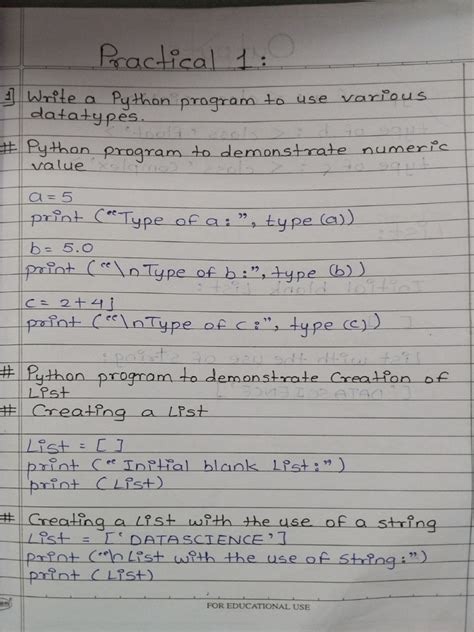 Practical 1:
1] Write a Python program to use various
datatypes.
# Python program to demonstrate numeric
value
a=5
print (“Type of a:”, type (a))
b= 5.0
print (“\n Type of b:”, type (b))
c= 2+4j
print (“\n Type of c:”, type (c))
# Python program to demonstrate Creation of
List
# Creating a List
List = [ ]
print (“ Initial blank List:”)
print (List)
# Creating a List with the use of a string
List = [‘ DATASCIENCE’]
print (“\n List with the use of String:”)
print (List)
FOR EDUCATIONAL USE